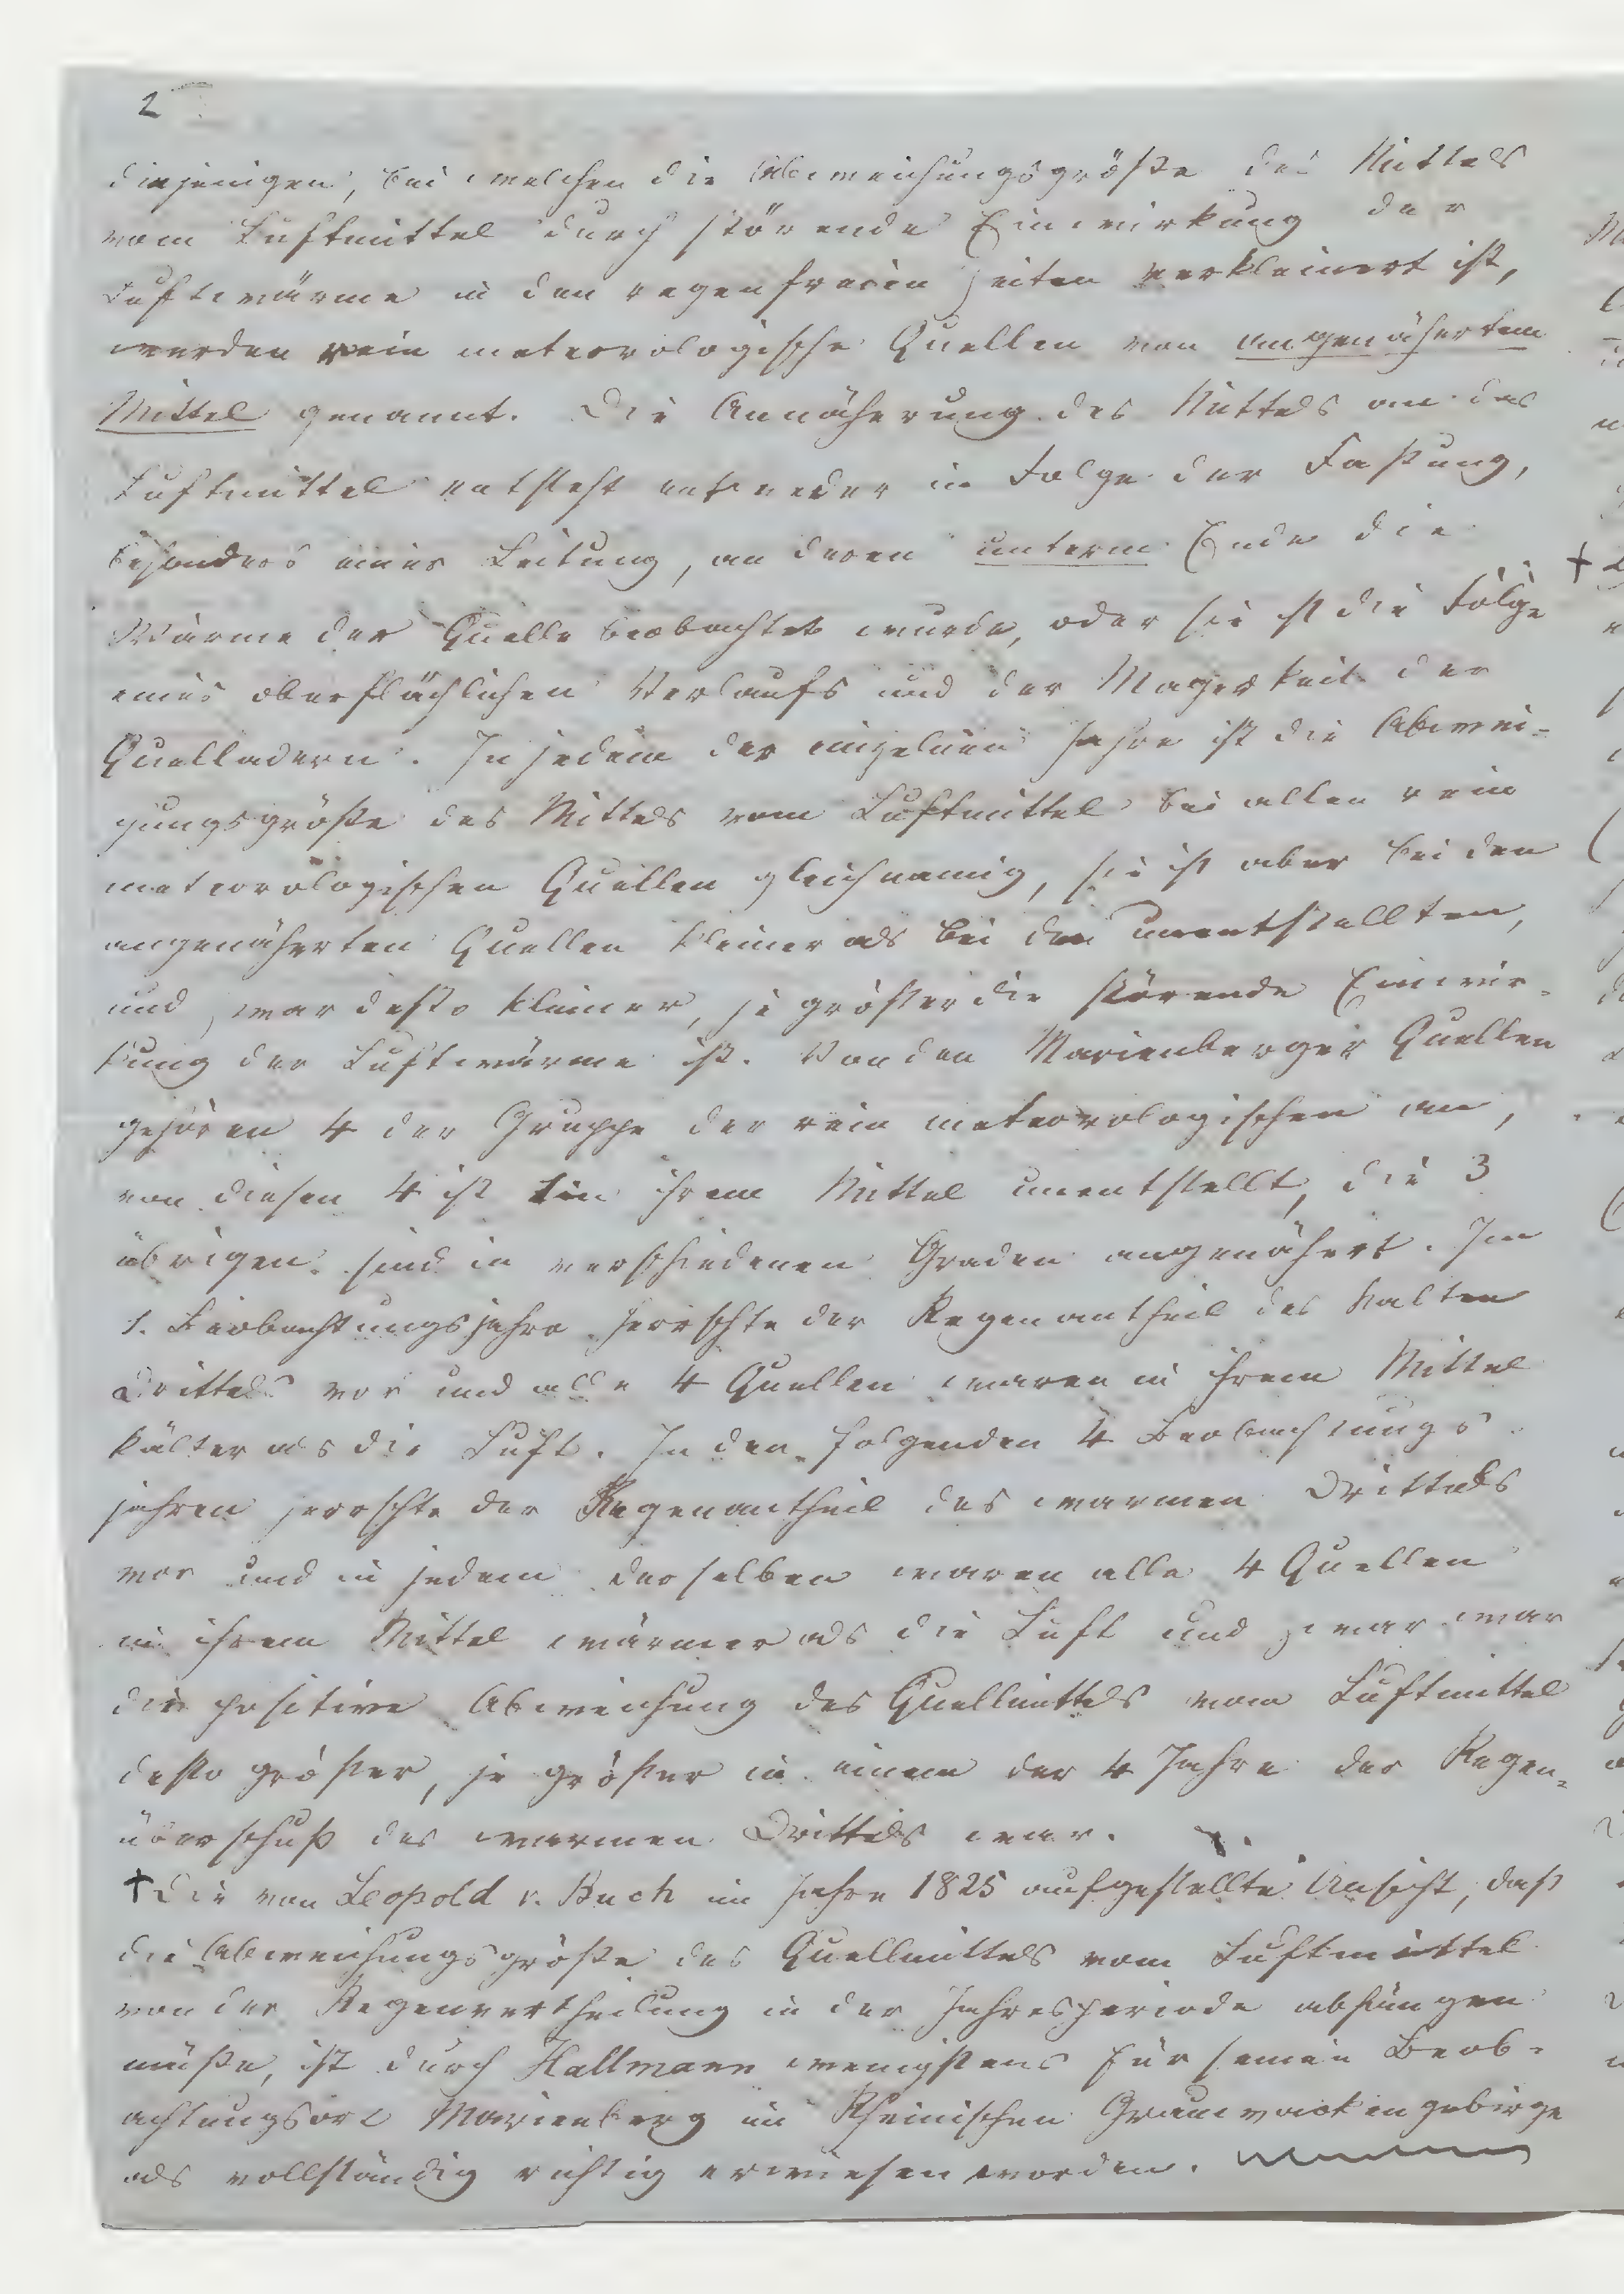 2
diejenigen, bei welchen die Abweichungsgröße des Mittels
vom Luftmittel durch störende Einwirkung der
Luftwärme in den regenfreien Zeiten verkleinert ist,
werden rein meteorologische Quellen von angenähertem
Mittel genannt. Die Annäherung des Mittels an das
Luftmittel entsteht entweder in Folge der Faßung,
besonders einer Leitung, an deren unterm Ende die
Wärme der Quelle beobachtet wurde, oder sie ist die Folge
eines oberflächlichen Verlaufs und der Magerkeit der
Quelladern. In jedem der einzelnen Jahre ist die Abwei-
chungsgröße des Mittels vom Luftmittel bei allen rein
meteorologischen Quellen gleichnamig, sie ist aber bei den
angenäherten Quellen kleiner als bei den unentstellten,
und zwar desto kleiner, je größer die störende Einwir-
kung der Luftwärme ist. Von den Marienberger Quellen
gehören 4 der Gruppe der rein meteorologischen an,
von diesen 4 ist Ein ihrem Mittel unentstellt, die 3
übrigen sind in verschiedenen Graden angenähert. Im
1. Beobachtungsjahre herrschte der Regenantheil des kalten
Drittels vor und alle 4 Quellen waren in ihrem Mittel
kälter als die Luft. In den folgenden 4 Beobachtungs-
jahren herrschte der Regenantheil des warmen Drittels
vor und in jedem derselben waren alle 4 Quellen
in ihrem Mittel wärmer als die Luft und zwar war
die positive Abweichung des Quellmittels vom Luftmittel
desto größer, je größer in einem der 4 Jahre der Regen-
überschuß des warmen Drittels war.
† Die von Leopold v. Buch im Jahre 1825 aufgestellte Ansicht, daß
die Abweichungsgröße des Quellmittels vom Luftmittel
von der Regenvertheilung in der Jahresperiode abhängen
müße, ist durch Hallmann wenigstens für seinen Beob-
achtungsort Marienberg im Rheinischen Grauwackengebirge
als vollständig richtig erwiesen worden.